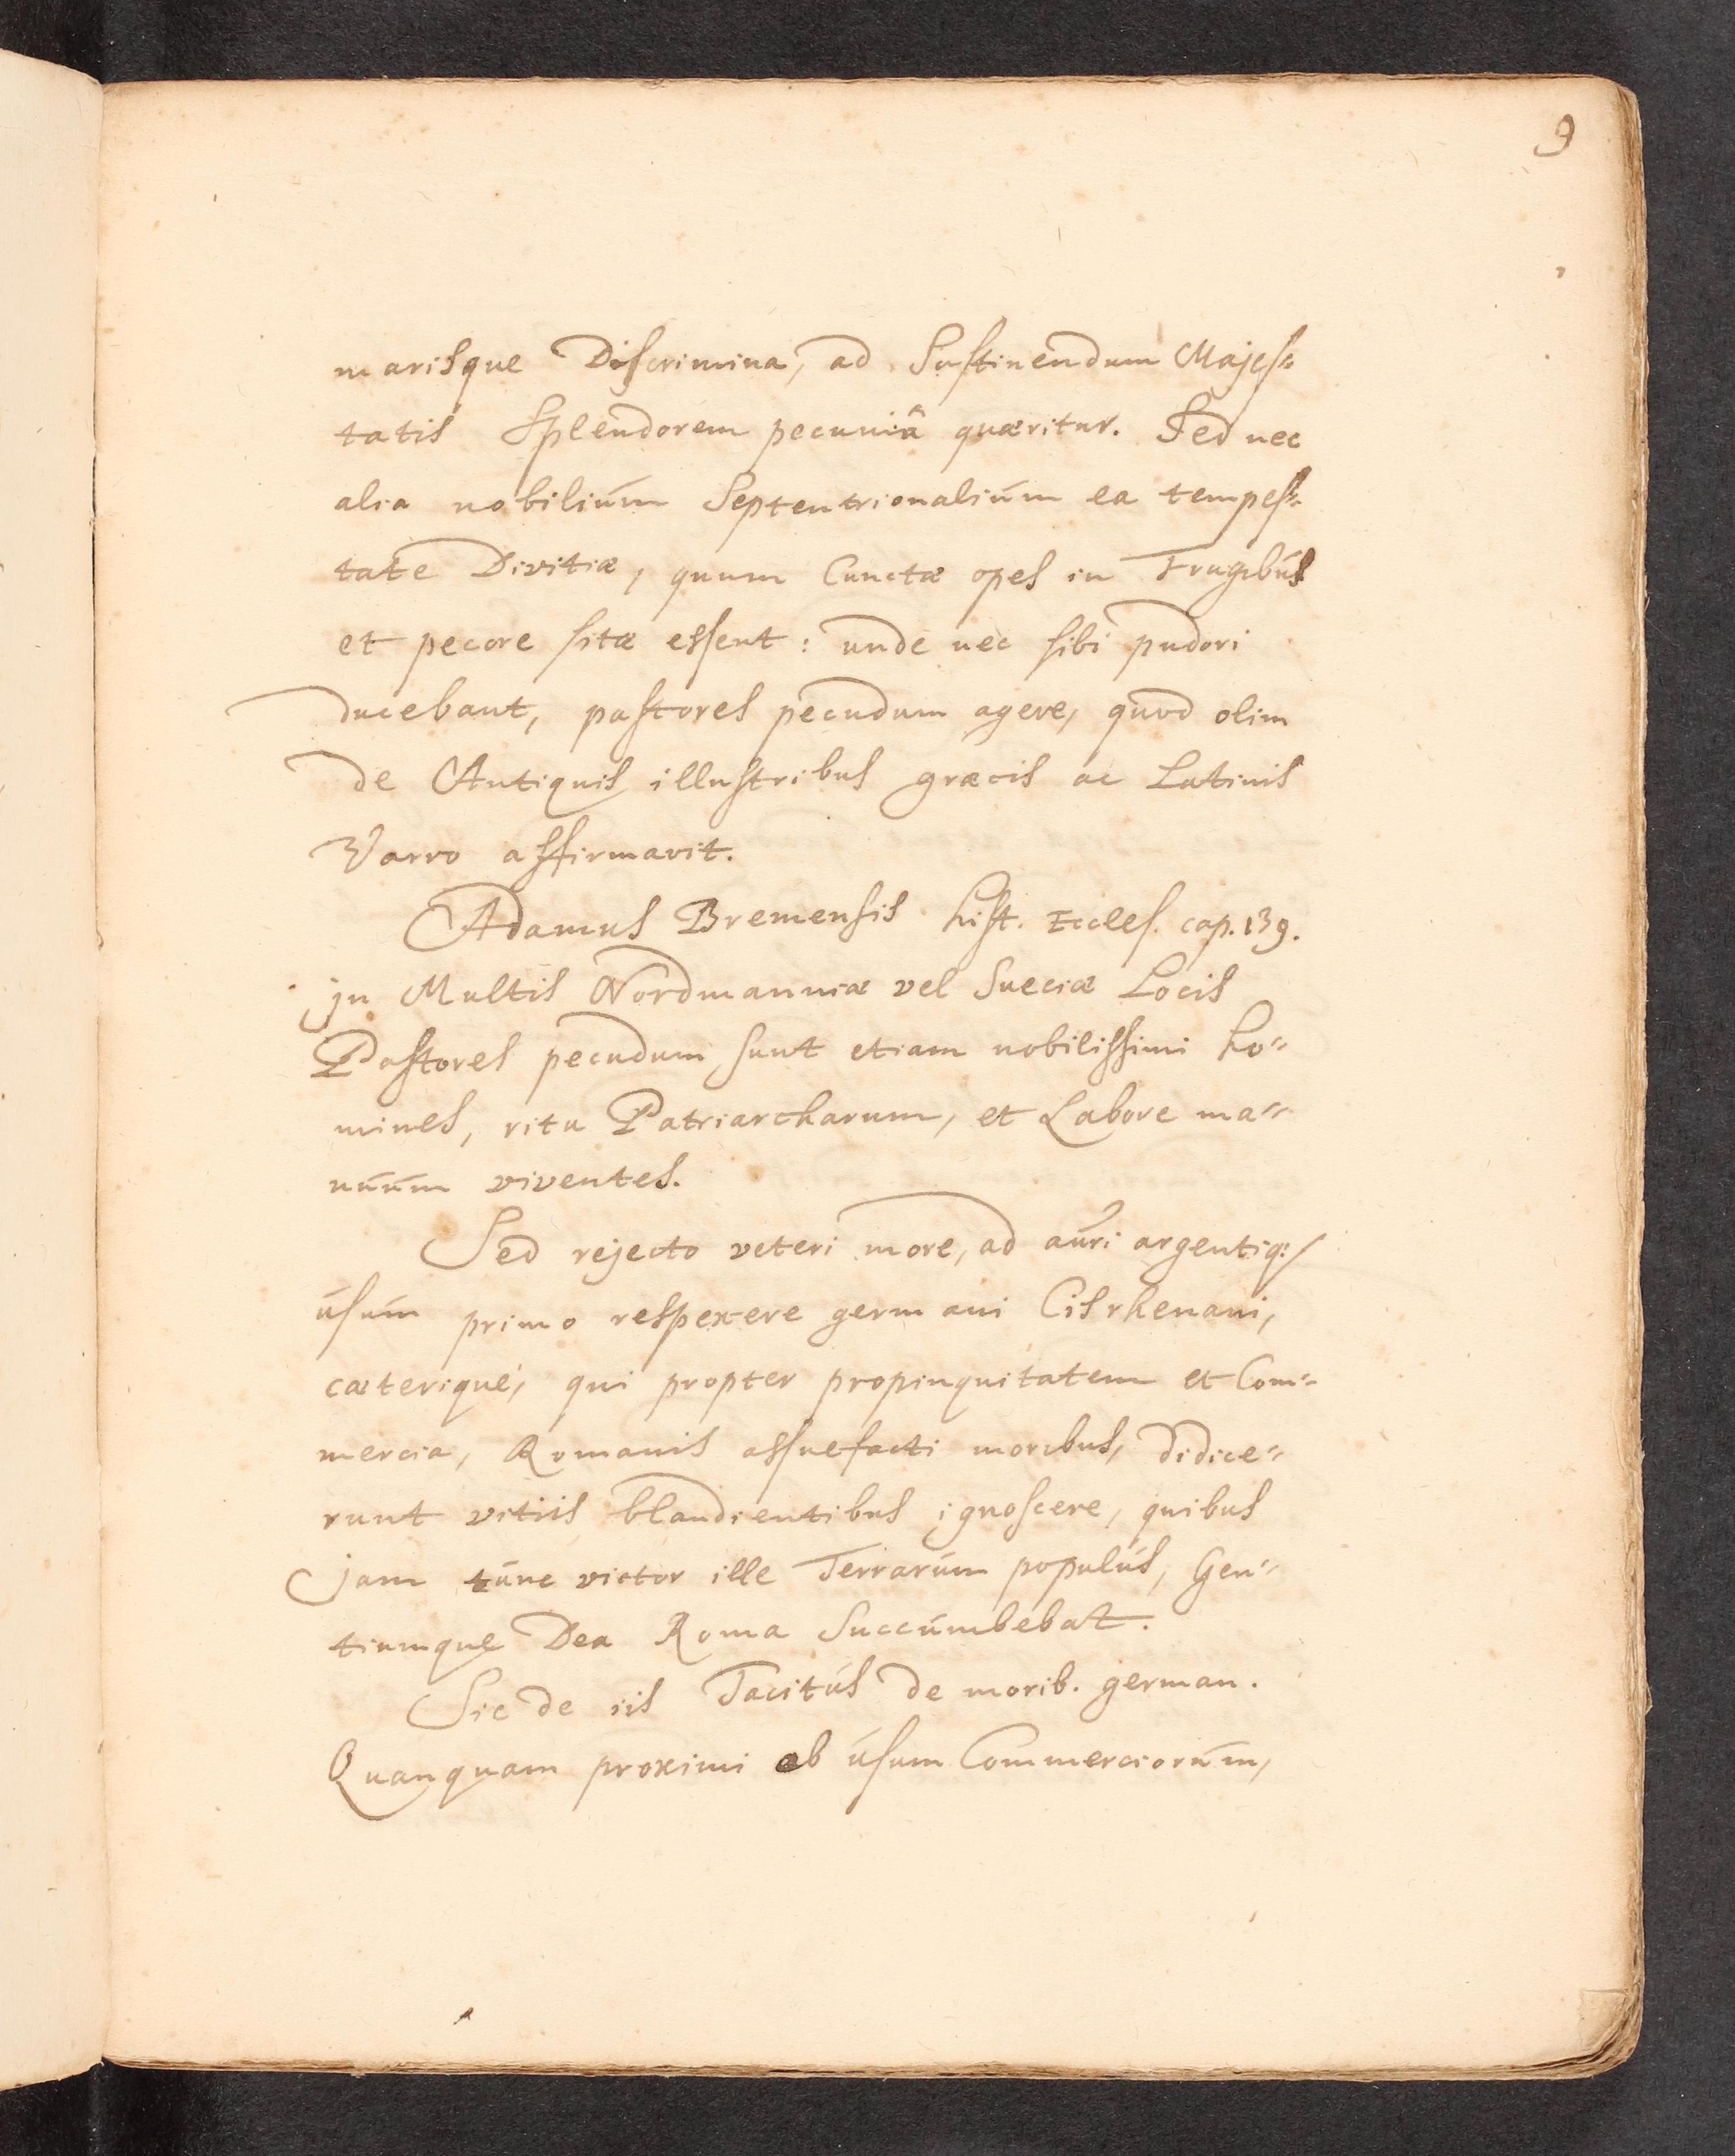 9
marisque Discrimina, ad Sustinendum Majes-
tatis Splendorem pecuniâ quæritur. Sed nec
alia nobilium Septentrionalium ea tempes-
tate Divitiæ, quum Cunctæ opes in Frugibus
et pecore sitæ essent: unde nec sibi pudori
ducebant, pastores pecudum agere, quod olim
de Antiquis illustribus græcis ac Latinis
Varro affirmavit.
Adamus Bremensis hist. Eccles. cap. 139.
jn Multis Nordmanniæ vel Sueciæ Locis
Pastores pecudum sunt etiam nobilissimi ho-
mines, ritu Patriarcharum, et Labore ma-
nuum viventes.
Sed rejecto veteri more, ad auri argentiq:
usum primo respexere germani Cisrhenani,
cæterique, qui propter propinquitatem et Com-
mercia, Romanis assuefacti moribus, didice-
runt vitiis blandientibus ignoscere, quibus
jam tunc victor ille Terrarum populus, Gen-
tiumque Dea Roma Succumbebat.
Sic de iis Tacitus de morib. german.
Quanquam proximi ob usum Commerciorum,